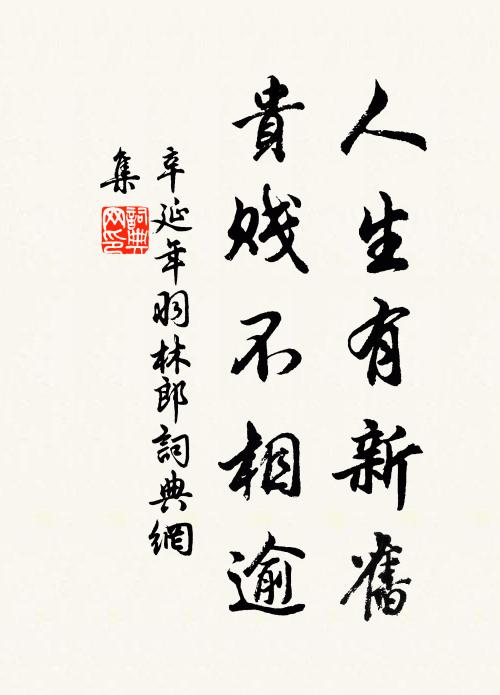 人生有新舊
貴賤不相逾
辛延年羽林郎詞典網
集
詞典
网印